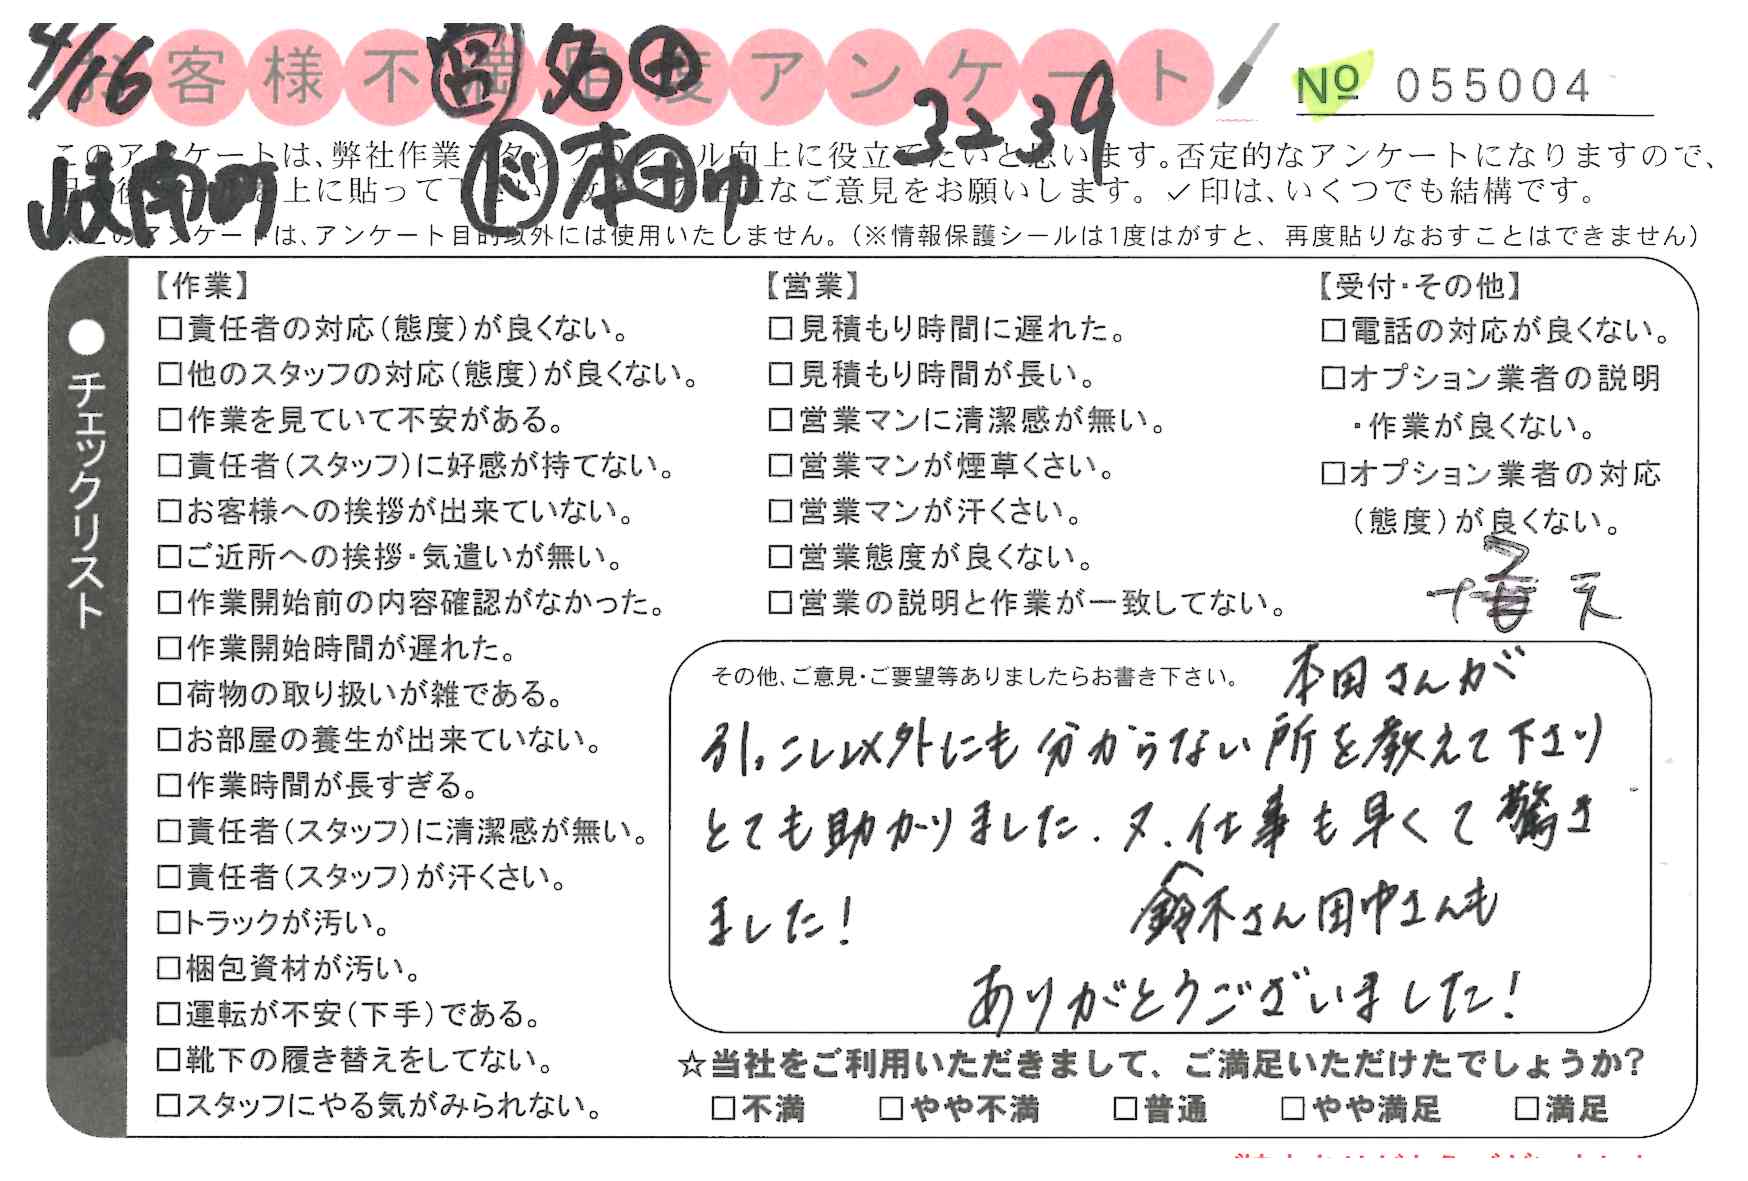 4/16
お客様不満足度アンケート
営 名田
№ 055004
3239
岐南町
ド 本田ゆ
このアンケートは、弊社作業スタッフのレベル向上に役立てたいと思います。否定的なアンケートになりますので、
を上に貼って下さい。なご意見をお願いします。✓印は、いくつでも結構です。
※このアンケートは、アンケート目的以外には使用いたしません。(※情報保護シールは1度はがすと、再度貼りなおすことはできません)
●チェックリスト
【作業】
□責任者の対応(態度)が良くない。
□他のスタッフの対応(態度)が良くない。
□作業を見ていて不安がある。
□責任者(スタッフ)に好感が持てない。
□お客様への挨拶が出来ていない。
□ご近所への挨拶・気遣いが無い。
□作業開始前の内容確認がなかった。
□作業開始時間が遅れた。
□荷物の取り扱いが雑である。
□お部屋の養生が出来ていない。
□作業時間が長すぎる。
□責任者(スタッフ)に清潔感が無い。
□責任者(スタッフ)が汗くさい。
□トラックが汚い。
□梱包資材が汚い。
□運転が不安(下手)である。
□靴下の履き替えをしてない。
□スタッフにやる気がみられない。
【営業】
□見積もり時間に遅れた。
□見積もり時間が長い。
□営業マンに清潔感が無い。
□営業マンが煙草くさい。
□営業マンが汗くさい。
□営業態度が良くない。
□営業の説明と作業が一致してない。
【受付・その他】
□電話の対応が良くない。
□オプション業者の説明
・作業が良くない。
□オプション業者の対応
(態度)が良くない。
その他、ご意見・ご要望等ありましたらお書き下さい。
本田さんが
引っこし以外にも分からない所を教えて下さり
とても助かりました。又、仕事も早くて驚き
ました!
鈴木さん田中さんも
ありがとうございました!
☆当社をご利用いただきまして、ご満足いただけたでしょうか?
□不満 □やや不満 □普通 □やや満足 □満足